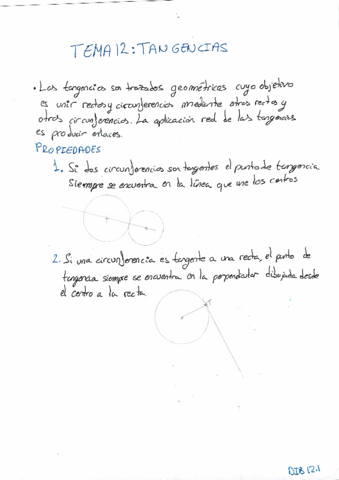 TEMA 12: TANGENCIAS
• Las tangencias son trazados geométricos cuyo objetivo
es unir rectas y circunferencias mediante otras rectas y
otras circunferencias. La aplicación real de las tangencias
es producir enlaces.
PROPIEDADES
1. Si dos circunferencias son tangentes el punto de tangencia
siempre se encuentra en la línea que une los centros
2. Si una circunferencia es tangente a una recta, el punto de
tangencia siempre se encuentra en la perpendicular dibujada desde
el centro a la recta
T
DIB 12.1